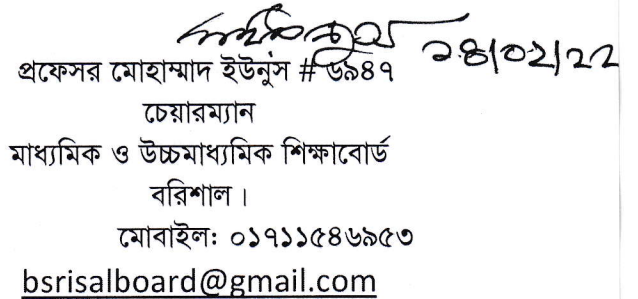 ২৪/০২/২২
প্রফেসর মোহাম্মাদ ইউনুস # ৬৯৪৭
চেয়ারম্যান
মাধ্যমিক ও উচ্চমাধ্যমিক শিক্ষাবোর্ড
বরিশাল ।
মোবাইলঃ ০১৭১১৫৪৬৯৫৩
bsrisalboard@gmail.com